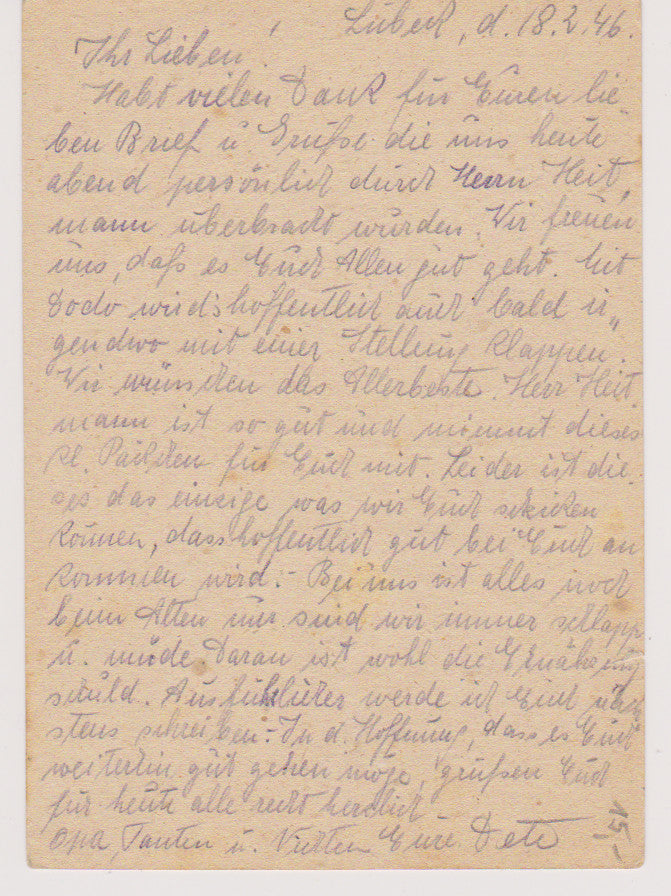 Lübeck, d. 18.2.46.
Ihr Lieben!
Habt vielen Dank für Euren lie-
ben Brief u. Grüße die uns heute
abend persönlich durch Herrn Heit,
mann überbracht wurden. Wir freuen
uns, daß es Euch Allen gut geht. Mit
Dodo wird's hoffentlich auch bald ir„
gendwo mit einer Stellung klappen.
Wir wünschen das Allerbeste. Herr Heit,
mann ist so gut und nimmt dieses
kl. Päckchen für Euch mit. Leider ist die-
ses das einzige was wir Euch schicken
können, dass hoffentlich gut bei Euch an
kommen wird.- Bei uns ist alles noch
beim Alten nur sind wir immer schlapp
u. müde Daran ist wohl die Ernährung
schuld. Ausführlicher werde ich Euch näch-
stens schreiben.- In d. Hoffnung, dass es Euch
weiterhin gut gehen möge, grüßen Euch
für heute alle recht herzlich
Opa, Tanten u. Eure
15,-